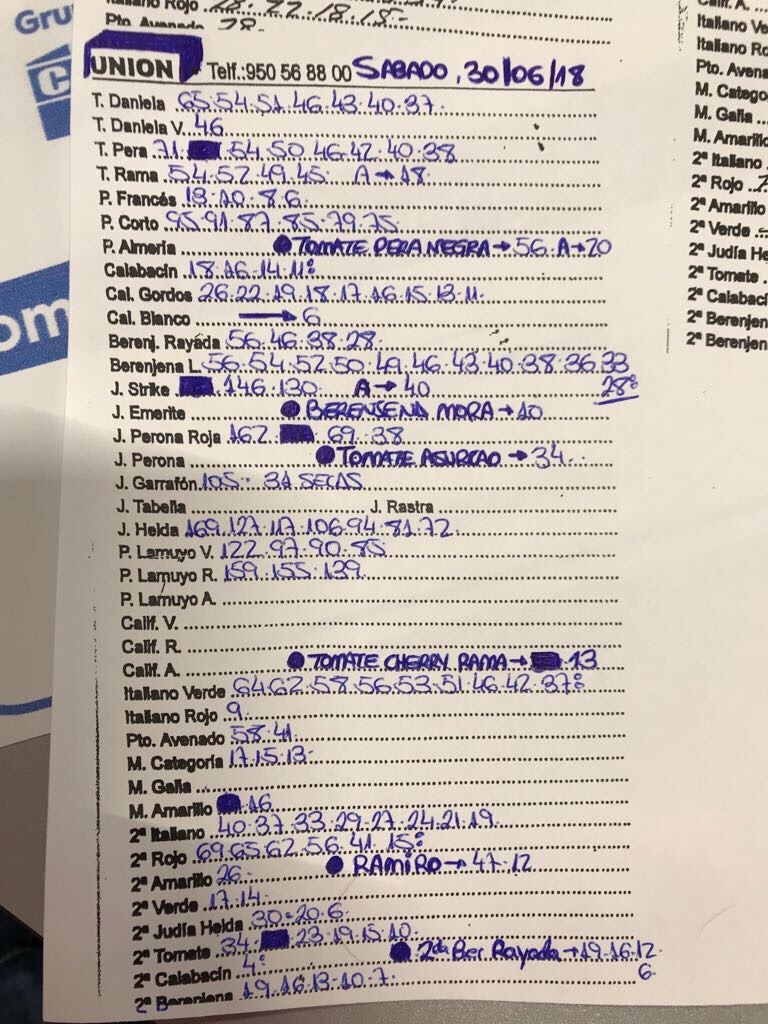 Italiano Rojo 28.22.18.15-
Pto. Avenado 28-
Gru
UNION Telf.:950 56 88 00 SABADO, 30/06/18
T. Daniela 65.54.51.46.43.40.37.
T. Daniela V. 46
T. Pera 71. 54.50.46.42.40.38
T. Rama 54.52.49.45. A→18.
P. Francés 13.10.8.6.
P. Corto 95.91.87.85.79.75.
P. Almería TOMATE PERA NEGRA→56.A→20
Calabacín 18.16.14.11:
Cal. Gordos 26.22.19.18.17.16.15.13.11.
Cal. Blanco → 6
Berenj. Rayáda 56.46.38.28.
Berenjena L. 56.54.52.50.49.46.43.40.38.36.33
28:
J. Strike 146.130. A→40
J. Emerite BERENSENA MORA→10
J. Perona Roja 162. 69.38
J. Perona TOMATE ASURCAO→34.
J. Garrafón 105. 31 SECAS
J. Tabella J. Rastra
J. Helda 169.127.117.106.94.81.72.
P. Lamuyo V. 122.97.90.85
P. Lamuyo R. 159.155.139.
P. Lamuyo A.
Calif. V.
Calif. R.
Calif. A. TOMATE CHERRY RAMA→ 13
Italiano Verde 64.62.58.56.53.51.46.42.37:
Italiano Rojo 9.
Pto. Avenado 58.41.
M. Categoria 17.15.13.
M. Galia
M. Amarillo 16
2ª Italiano 40.37.33.29.27.24.21.19.
2ª Rojo 69.65.62.56.41.15:
2ª Amarillo 26. RAMIRO→47.12
2ª Verde 17.14.
2ª Judía Helda 30.20.6.
2ª Tomate 34. 23.19.15.10.
2ª Calabacín 4: 2da Ber Rayada→19.16.12.
6.
2ª Berenjena 19.16.13.10.7.
Calif. A.
Italiano Ve
Italiano Ro
Pto. Avena
M. Catego
M. Galia
M. Amaril
2ª Italiano
2ª Rojo
2ª Amarillo
2ª Verde
2ª Judía He
2ª Tomate
2ª Calabací
2ª Berenjen
2ª Berenjen
om